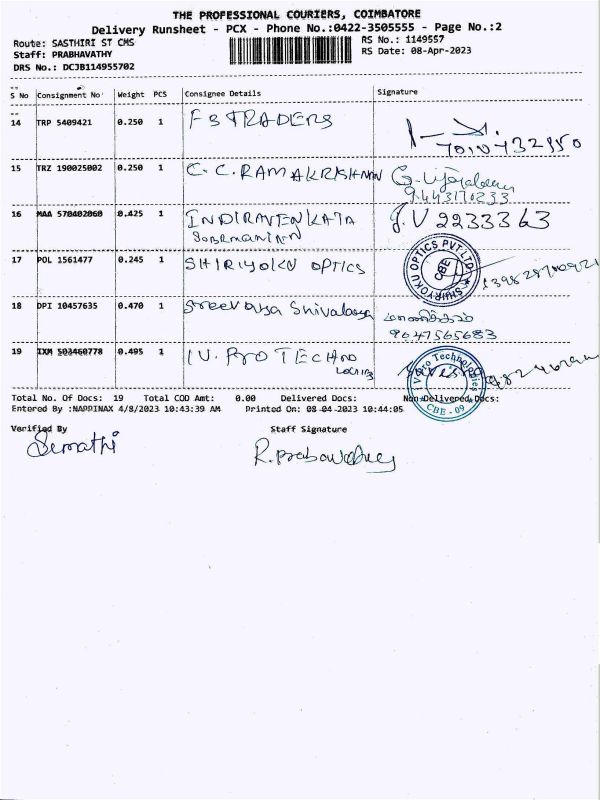 THE PROFESSIONAL COURIERS, COIMBATORE
Delivery Runsheet - PCX - Phone No.:0422-3505555 - Page No.:2
Route: SASTHIRI ST CMS
RS No.: 1149557
Staff: PRABHAVATHY
RS Date: 08-Apr-2023
DRS No.: DCJB114955702
S No Consignment No Weight PCS Consignee Details Signature
14 TRP 5409421 0.250 1 FS TRADERS
15 TRZ 190025002 0.250 1 C.C.RAMAKRISHNAN
9443170233
16 MAA 578402060 0.425 1 INDIRAVENKATA J.V 2233363
17 POL 1561477 0.245 1 SHIRIYOKU OPTICS
SHIRYOKU OPTICS PVT.LTD. CBE
18 DPI 10457635 0.470 1 Shivalaya
9647565683
19 IXM 503460778 0.495 1 IV. PRO TECHNO
Technologies CBE - 09
Total No. Of Docs: 19 Total COD Amt: 0.00 Delivered Docs: Non-Delivered Docs:
Entered By :NAPPINAX 4/8/2023 10:43:39 AM Printed On: 08-04-2023 10:44:05
Verified By Staff Signature